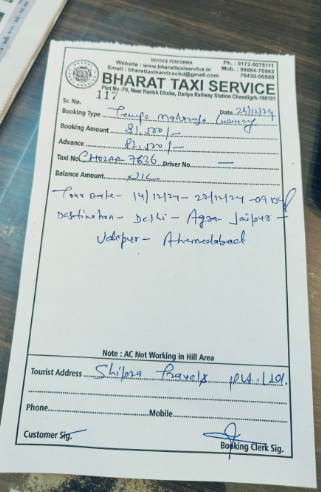 INVOICE PERFORMA
Website : www.bharattaxiservice.in
Email : bharattaxiservicechd@gmail.com
Ph. : 0172-5076111
Mob. :
BHARAT TAXI SERVICE
Plot No -70, Near Harish Dhaba, Dariya Railway Station Chandigarh-160101
Sr. No. 117
Date 24/12/24
Booking Type Tempo Maharaja Luxury
Booking Amount 81,000/-
Advance 81,000/-
Taxi No. Driver No. —
Balance Amount Nil
Tour Date - 14/12/24 - 22/12/24 - 09
Destination - Delhi - Agra - Jaipur -
Udaipur - Ahemedabad
Note : AC Not Working in Hill Area
Tourist Address Shipra Travels Pvt. Ltd.
Phone Mobile
Customer Sig. Booking Clerk Sig.